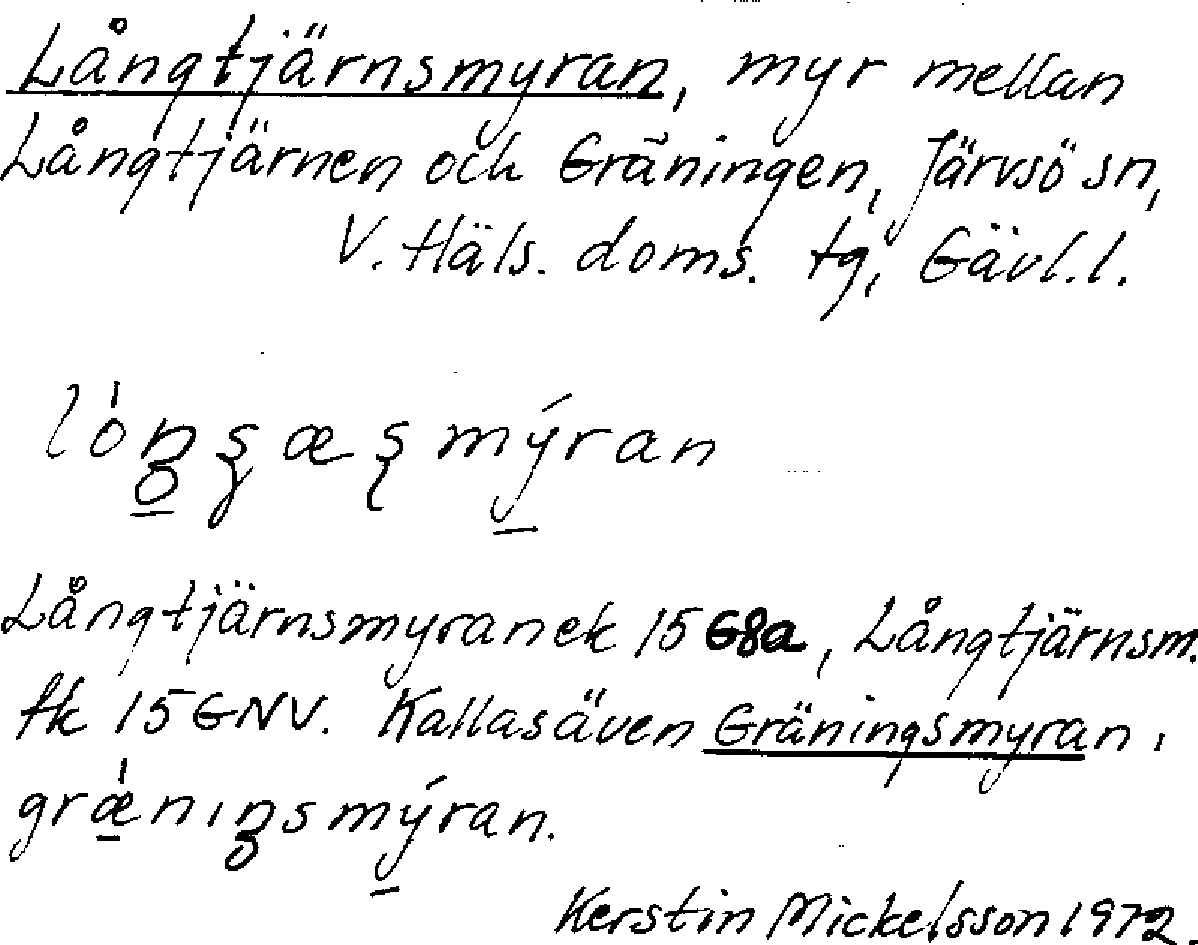 Långtjärnsmyran, myr mellan
Långtjärnen och Gräningen, Järvsö sn,
V. Häls. doms. tg, Gävl.l.
mýran
Långtjärnsmyran ek 15 G8a, Långtjärnsm.
tk 15 GNV. Kallas även Gräningsmyran,
grǽnıŋsmýran.
Kerstin Mickelsson 1972.